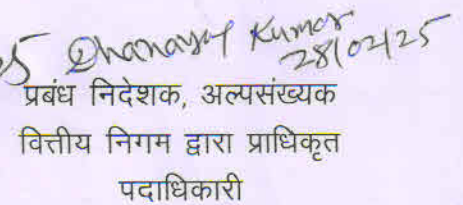 Dhananjay Kumar
28/02/25
प्रबंध निदेशक, अल्पसंख्यक
वित्तीय निगम द्वारा प्राधिकृत
पदाधिकारी